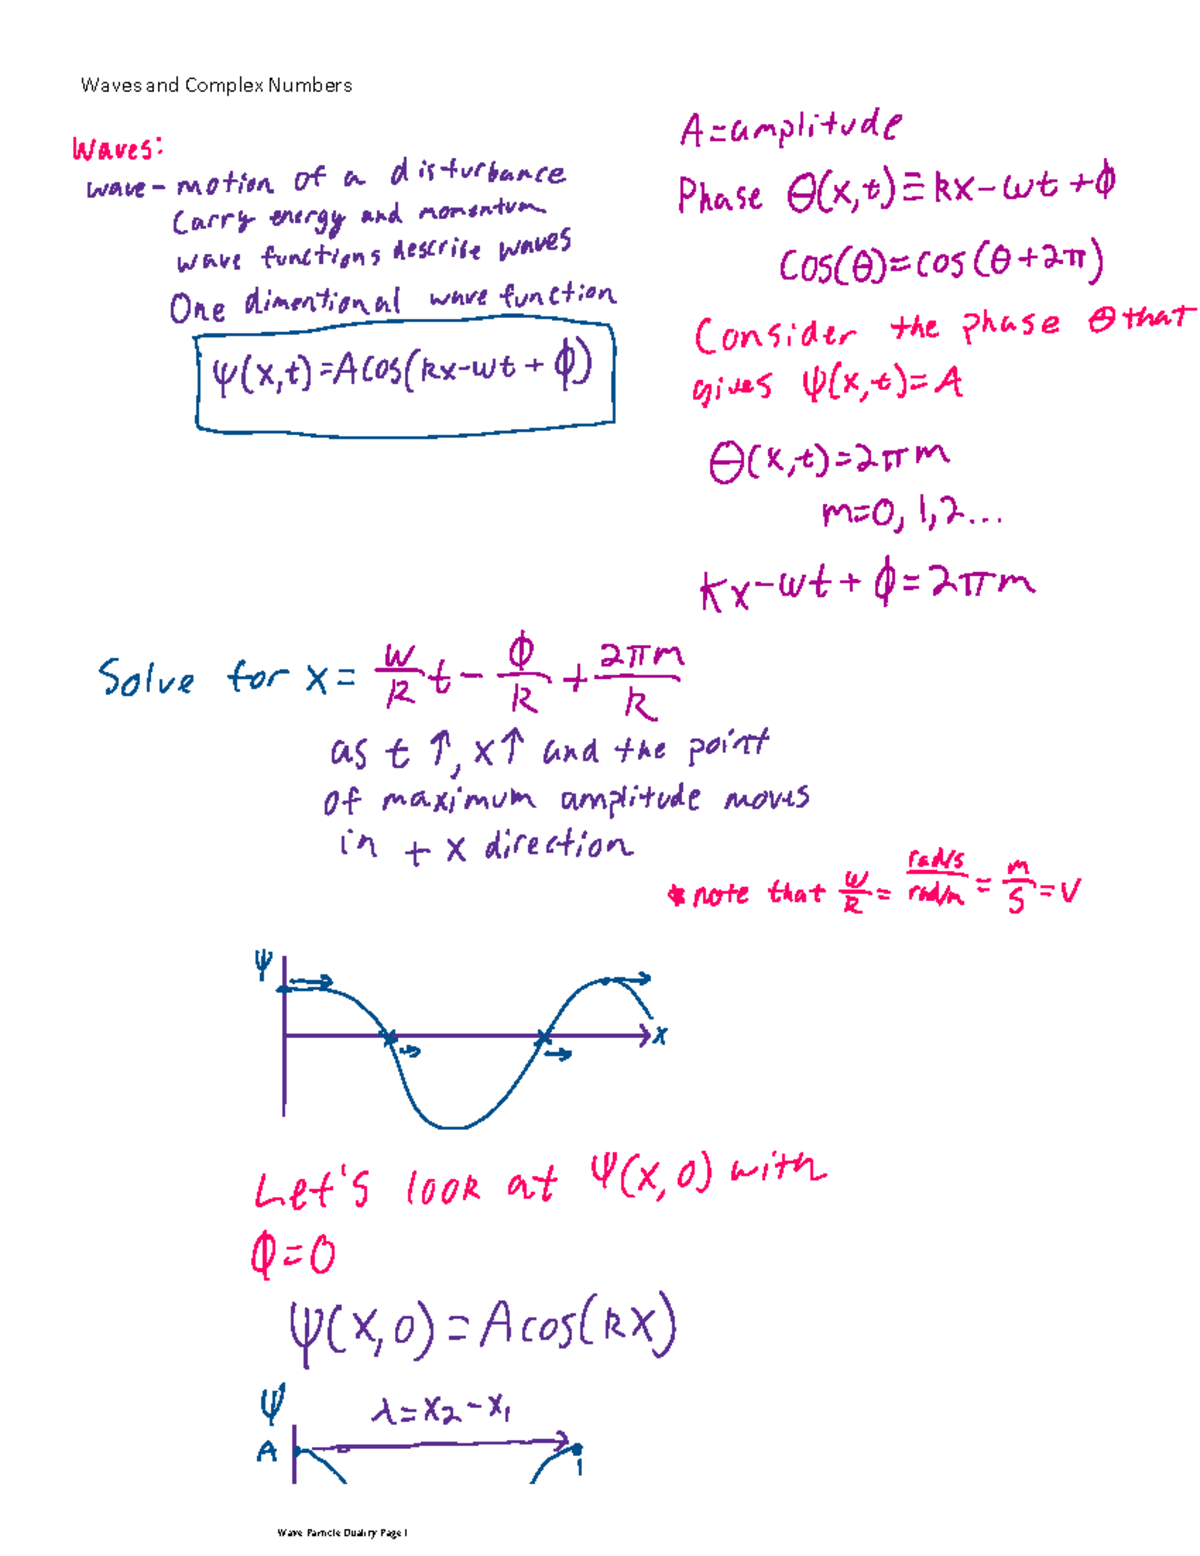 Waves and Complex Numbers
Waves:
wave - motion of a disturbance
Carry energy and momentum
wave functions describe waves
One dimentional wave function
Ψ(x,t)=Acos(kx-wt+ϕ)
A=amplitude
Phase θ(x,t)≡kx-wt+ϕ
cos(θ)=cos(θ+2π)
Consider the phase θ that
gives Ψ(x,t)=A
θ(x,t)=2πm
m=0,1,2...
kx-wt+ϕ=2πm
Solve for x= w/k t - ϕ/k + 2πm/k
as t ↑, x↑ and the point
of maximum amplitude moves
in + x direction
* note that w/k = rad/s / rad/m = m/s = v
Ψ
x
Let's look at Ψ(x,0) with
ϕ=0
Ψ(x,0)=Acos(kx)
Ψ
λ=x₂-x₁
A
1
Wave Particle Duality Page 1